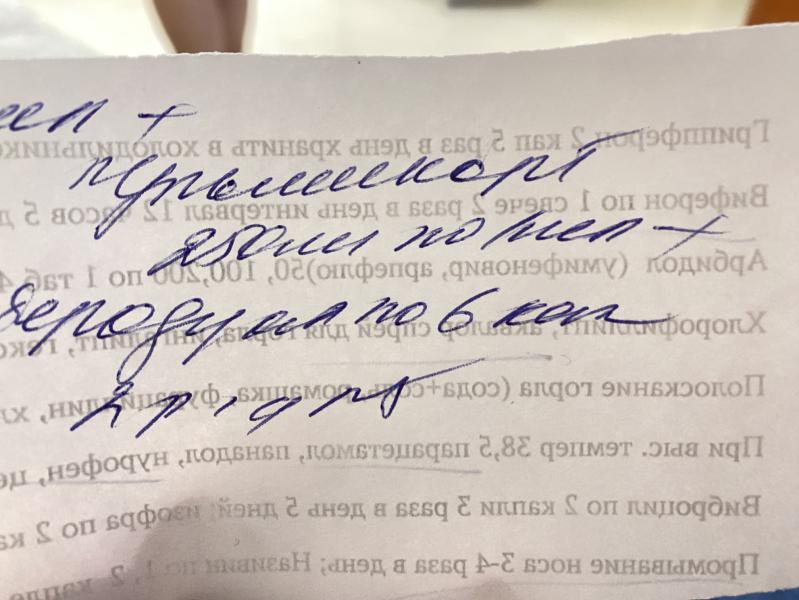 +
Пульмикорт
250мл по 1 +
Беродуал по 6 кап
2 р д №5
Гриппферон 2 кап 5 раз в день хранить в холодильник
Виферон по 1 свече 2 раза в день интервал 12 часов 5 д
Арбидол (умифеновир, арпефлю)50, 100,200 по 1 таб 4
Хлорофиллипт, аквалор спрей для горла, ингалипт, гекс
Полоскание горла (сода+соль, ромашка, фурациллин, хл
При выс. темпер 38,5 парацетамол, панадол, нурофен, це
Виброцил по 2 капли 3 раза в день 5 дней; изофра по 2 ка
Промывание носа 3-4 раза в день; Називин по 1, 2 капле